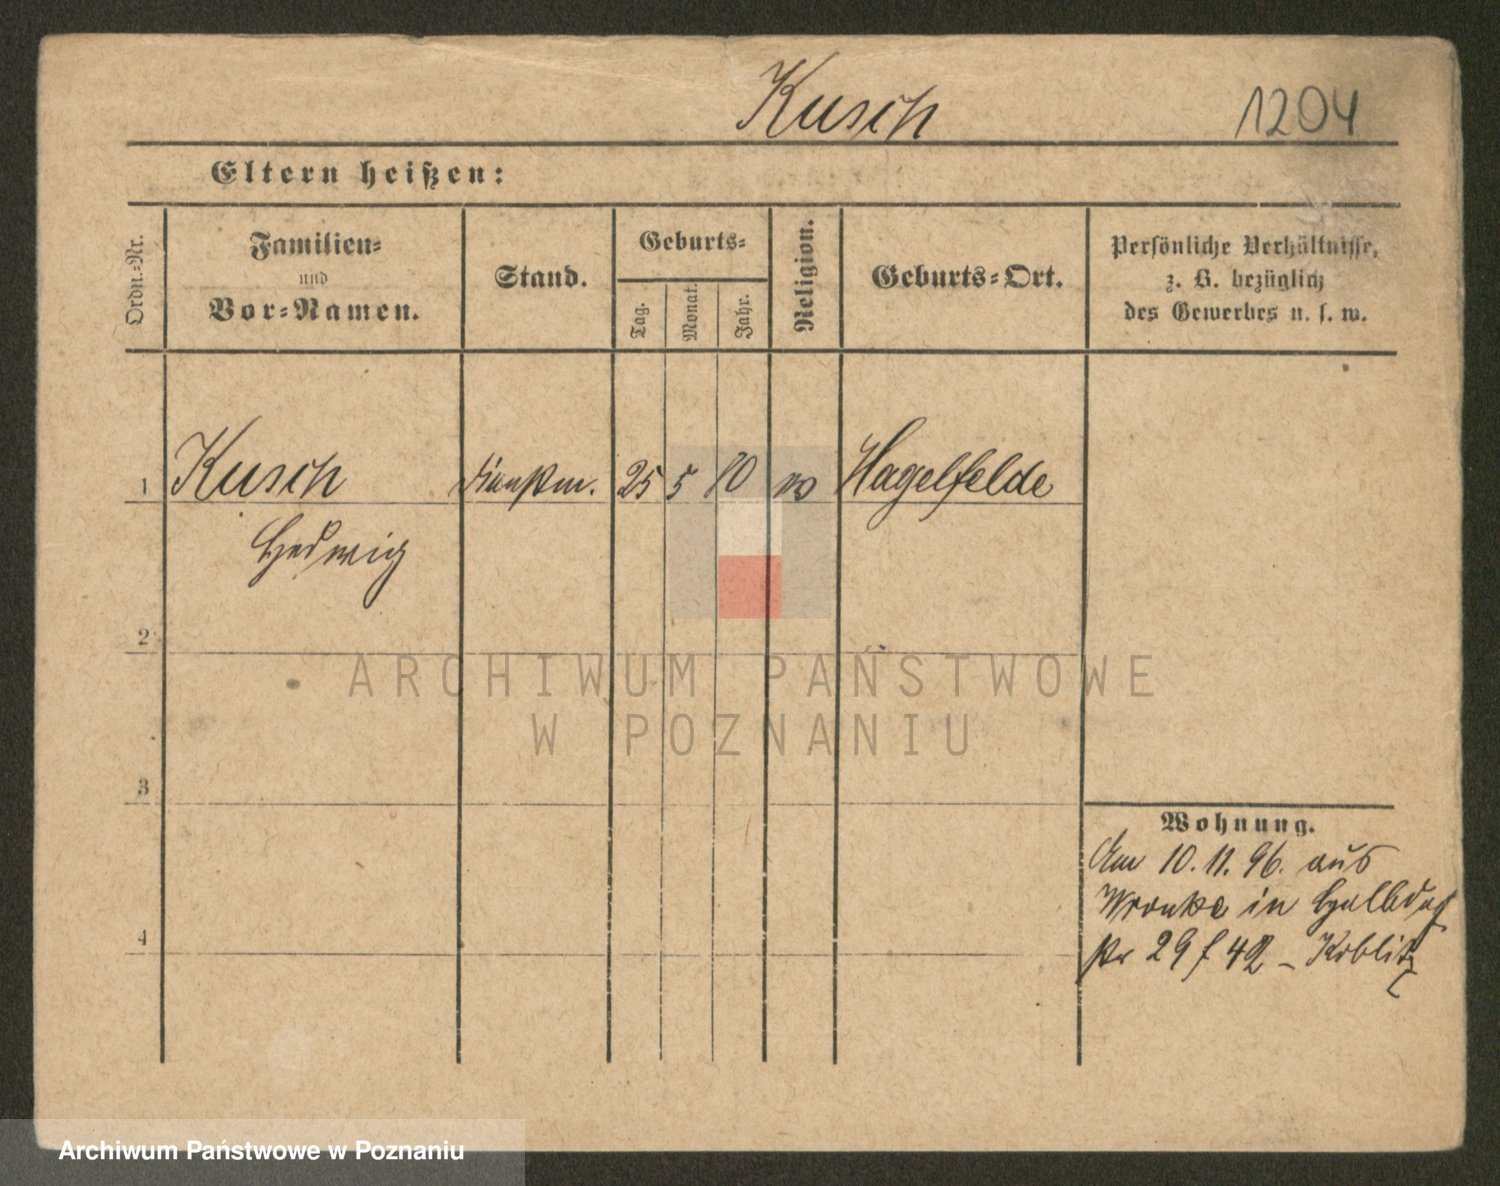 Kusch
1204
Eltern heißen:
Ordn.-Nr.
Familien-
und
Vor-Namen.
Stand.
Geburts-
Tag.
Monat.
Jahr.
Religion.
Geburts-Ort.
Persönliche Verhältnisse,
z. B. bezüglich
des Gewerbes u. s. w.
1 Kusch 25 5 80 Hagelfelde
Hedwig
2
3
4
Wohnung.
Am 10. 11. 96. aus
Wronke in Halbdorf
str 29 f 42 - Koblitz
ARCHIWUM PAŃSTWOWE
W POZNANIU
Archiwum Państwowe w Poznaniu